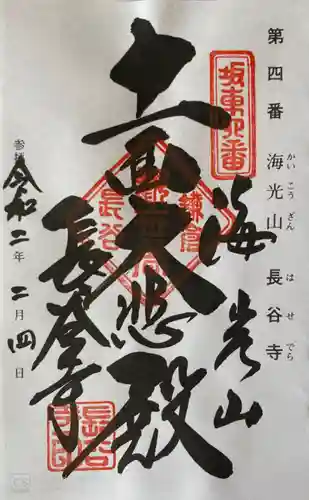 第四番 海光山 長谷寺
かいこうざん はせでら
坂東四番
海光山
十一面大悲殿
長谷寺
鎌倉
長谷
参拝
令和二年二月四日